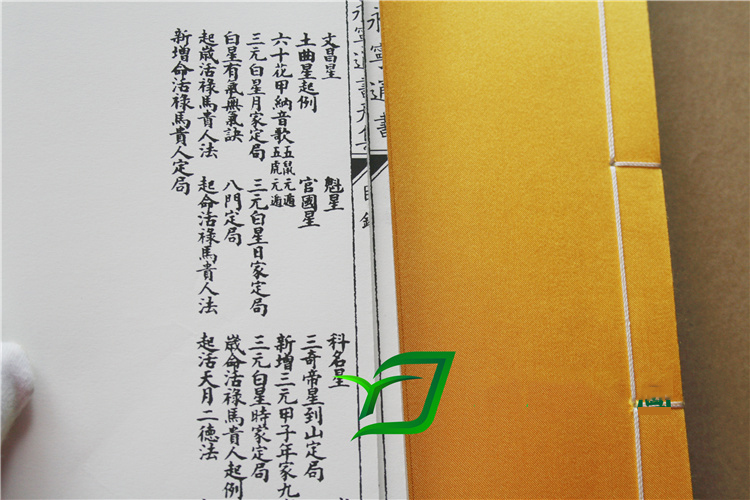 永寧通書
永寧通書
目錄
文昌星 魁星 科名星
土曲星起例 官國星 三奇帝星到山定局
六十花甲納音歌 五鼠元遁 五虎元遁 新增三元甲子年家九
三元白星月家定局 三元白星日家定局 三元白星時家定局
白星有氣無氣訣 八門定局 歲命活祿馬貴人起例
起歲活祿馬貴人法 起命活祿馬貴人法 起活天月二德法
新增命活祿馬貴人定局